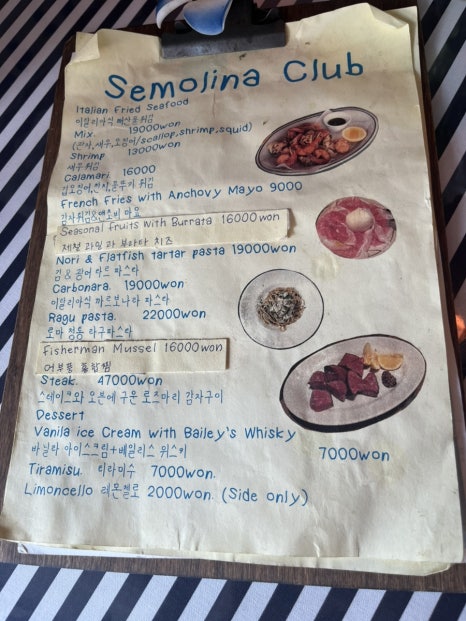 Semolina Club
Italian Fried Seafood
이탈리아식 해산물 튀김
Mix. 19000won
(관자,새우,오징어/scallop,shrimp,squid)
Shrimp 13000won
새우 튀김
Calamari. 16000
갑오징어,한치,꼴뚜기 튀김
French Fries with Anchovy Mayo 9000
감자튀김&앤초비 마요
Seasonal fruits with Burrata 16000won
제철 과일 과 부라타 치즈
Nori & Flatfish tartar pasta 19000won
김 & 광어 타르 파스타
Carbonara. 19000won
이탈리아식 까르보나라 파스타
Ragu pasta. 22000won
로마 정통 라구파스타
Fisherman Mussel 16000won
어부풍 홍합찜
Steak. 47000won
스테이크와 오븐에 구운 로즈마리 감자구이
Dessert
Vanila ice Cream with Bailey's Whisky
바닐라 아이스크림+베일리스 위스키
7000won
Tiramisu. 티라미수 7000won.
Limoncello 레몬첼로 2000won. (Side only)